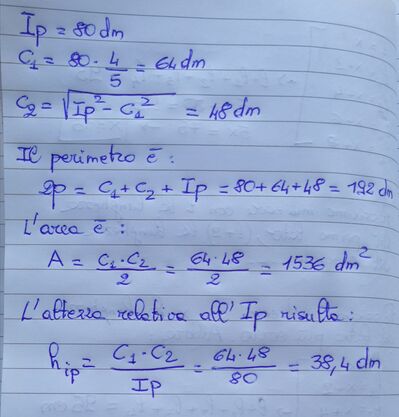 Ip = 80 dm
C₁ = 80 · 4/5 = 64 dm
C₂ = √(Ip² - C₁²) = 48 dm
Il perimetro è:
2p = C₁ + C₂ + Ip = 80 + 64 + 48 = 192 dm
L'area è:
A = C₁ · C₂ / 2 = 64 · 48 / 2 = 1536 dm²
L'altezza relativa all' Ip risulta:
h_ip = C₁ · C₂ / Ip = 64 · 48 / 80 = 38,4 dm